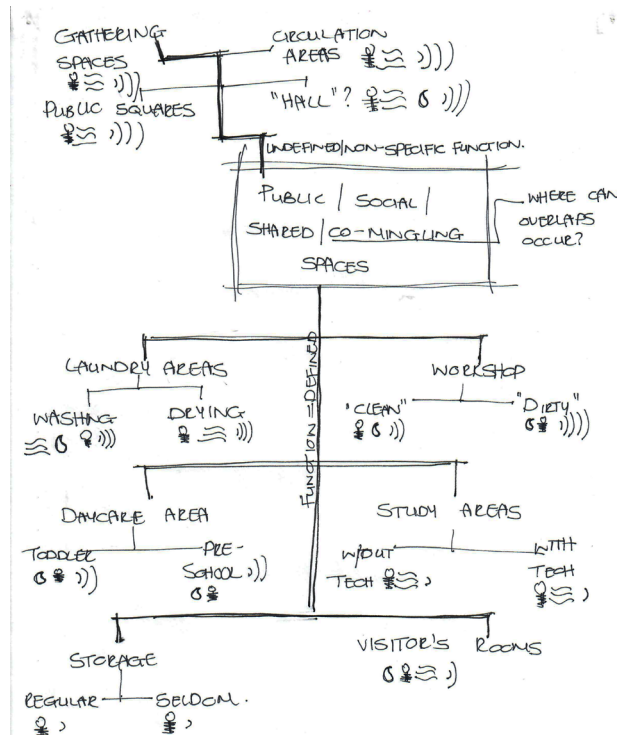 GATHERING
SPACES
CIRCULATION
AREAS
PUBLIC SQUARES
"HALL"?
UNDEFINED/NON-SPECIFIC FUNCTION.
PUBLIC / SOCIAL /
SHARED / CO-MINGLING
SPACES
WHERE CAN
OVERLAPS
OCCUR?
FUNCTION = DEFINED
LAUNDRY AREAS
WASHING
DRYING
WORKSHOP
"CLEAN"
"DIRTY"
DAYCARE AREA
TODDLER
PRE-
SCHOOL
STUDY AREAS
W/OUT
TECH
WITH
TECH
STORAGE
REGULAR
SELDOM.
VISITOR'S ROOMS